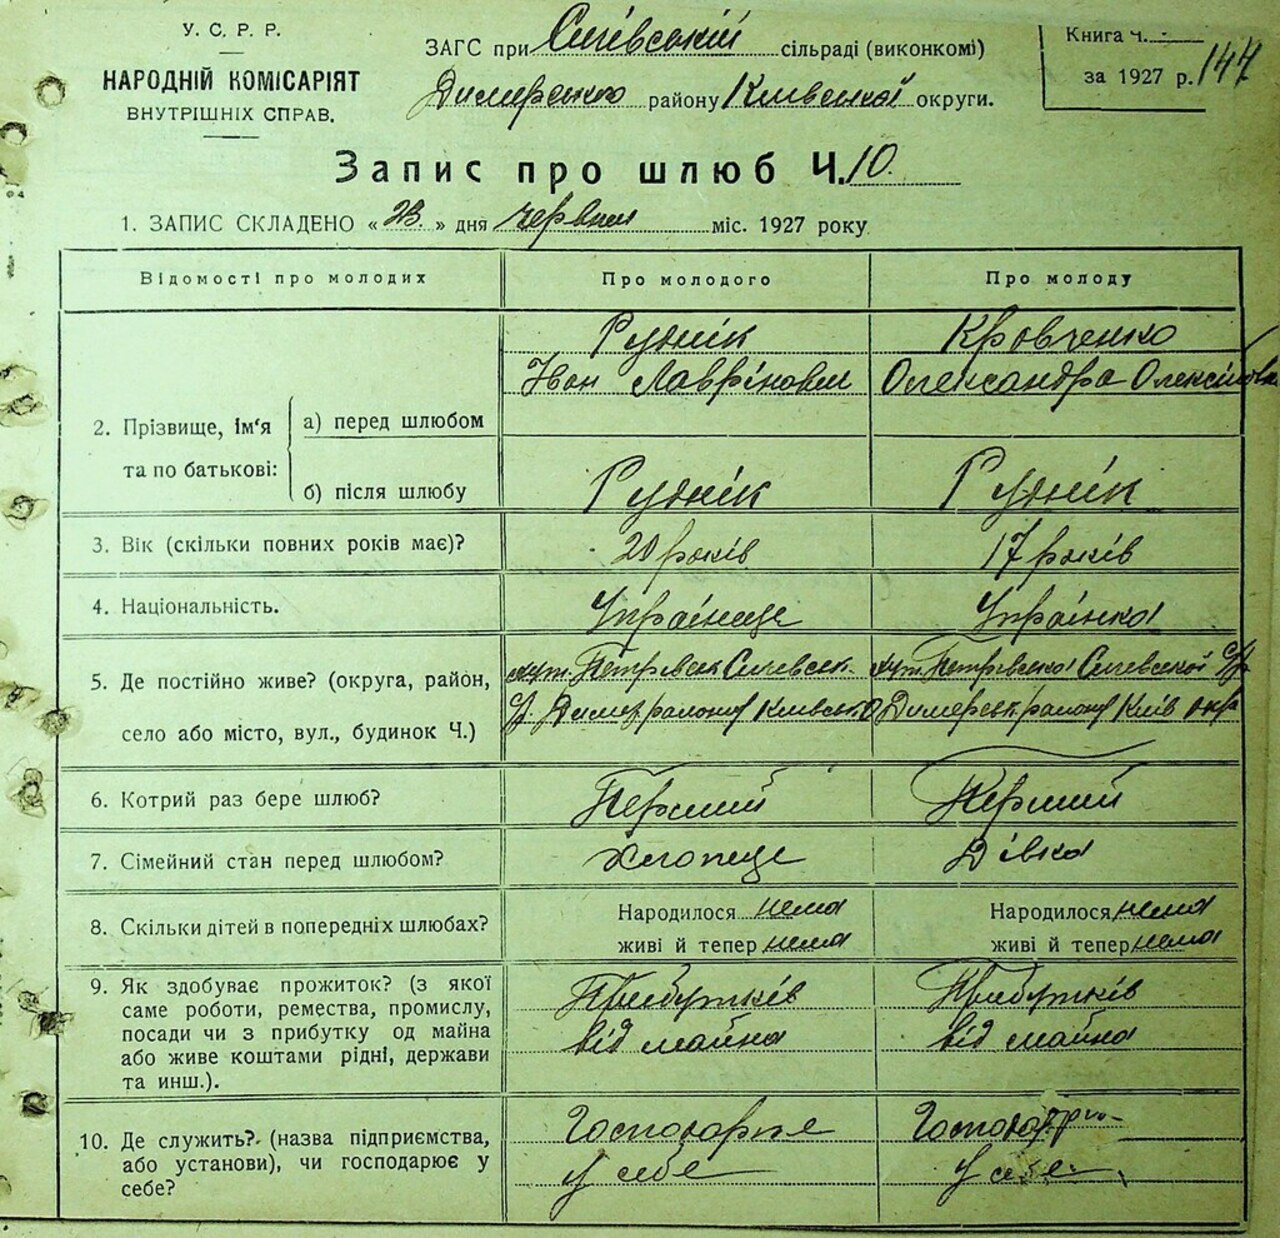 У. С. Р. Р.
НАРОДНІЙ КОМІСАРІЯТ
ВНУТРІШНІХ СПРАВ.
ЗАГС при Сичівській сільраді (виконкомі)
Димерського району Київської округи.
Книга ч.
за 1927 р. 144
Запис про шлюб Ч. 10.
1. ЗАПИС СКЛАДЕНО « 23. » дня червня міс. 1927 року
Відомості про молодих Про молодого Про молоду
2. Прізвище, ім‘я та по батькові:
а) перед шлюбом
Руднік
Іван Лаврінович
Кровченко
Олександра Олексіївна
б) після шлюбу Руднік Руднік
3. Вік (скільки повних років має)? 20 років 17 років
4. Національність. Українець Українка
5. Де постійно живе? (округа, район,
село або місто, вул., будинок Ч.)
хут. Петрівськ Сичевськ.
С/р. Димер. району Київсько
хут. Петрівської Сичевської С/р
Димерськ району Київ окр
6. Котрий раз бере шлюб? Перший Перший
7. Сімейний стан перед шлюбом? Хлопець Дівка
8. Скільки дітей в попередніх шлюбах?
Народилося нема
живі й тепер нема
Народилося нема
живі й тепер нема
9. Як здобуває прожиток? (з якої
саме роботи, ремества, промислу,
посади чи з прибутку од майна
або живе коштами рідні, держави
та инш.).
Прибутків
від майна
Прибутків
від майна
10. Де служить? (назва підприємства,
або установи), чи господарює у
себе?
Господарює
у себе
Господарю
у себе